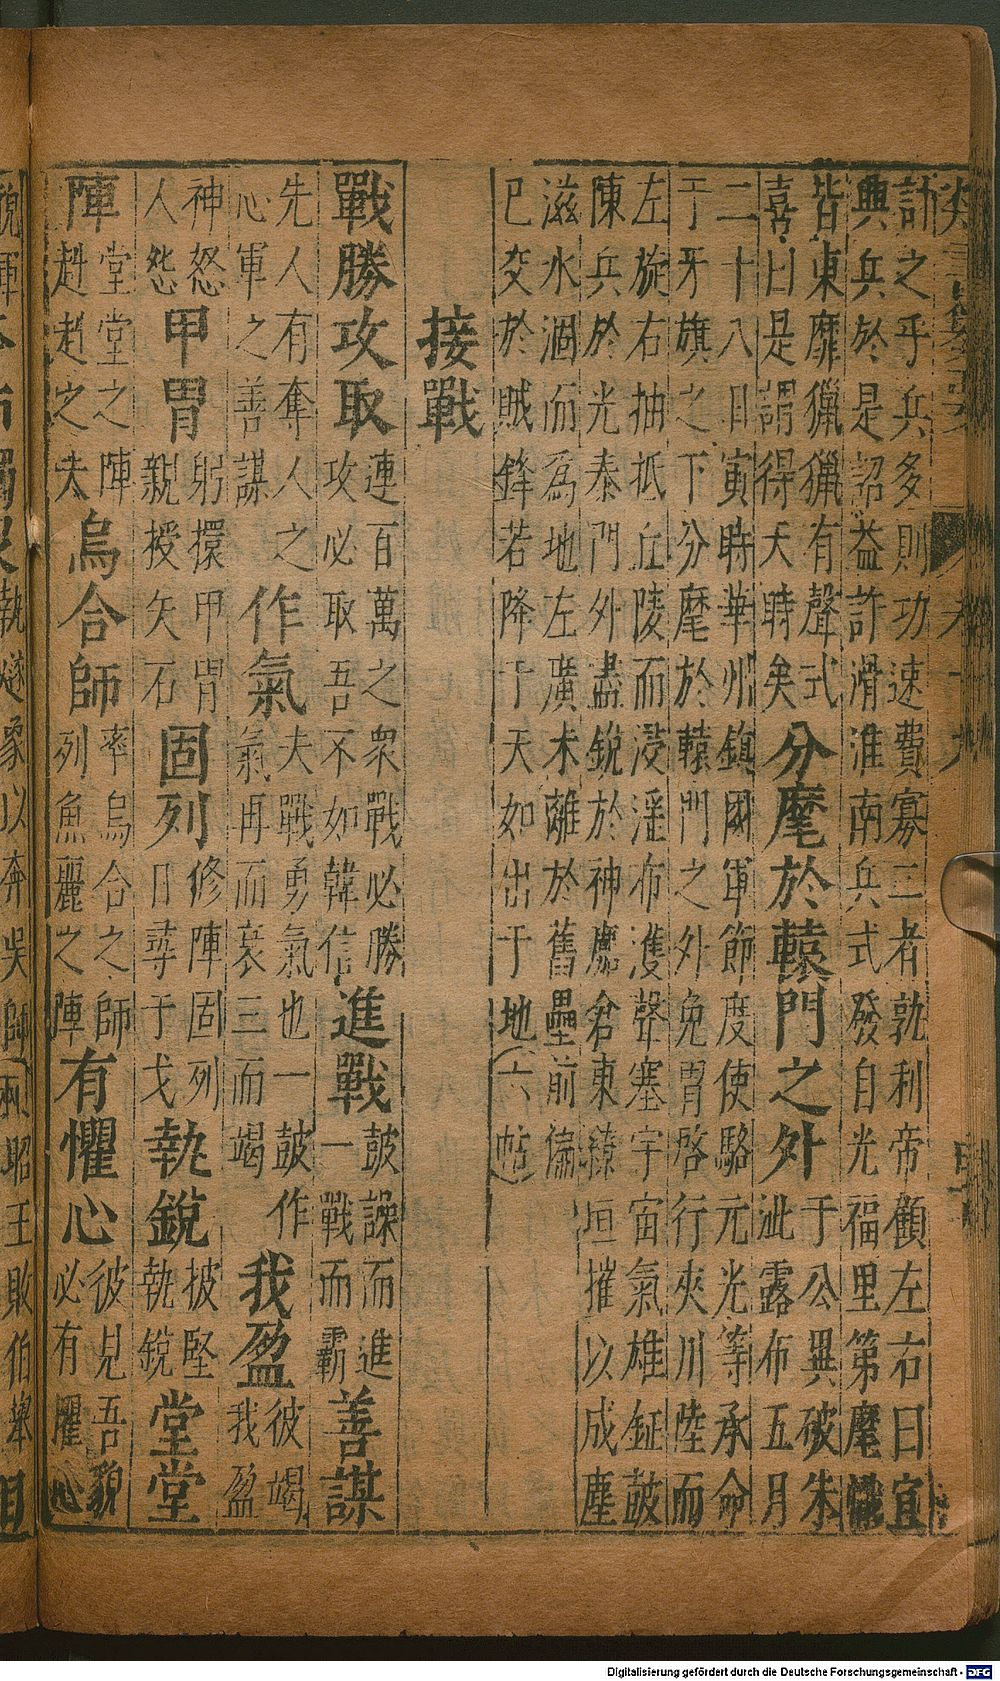 計之乎兵多則功速費寡三者孰利帝顧左右曰宜
興兵於是詔益許滑淮南兵式發自光福里第麾幟
皆東靡獵獵有聲式
喜曰是謂得天時矣
分麾於轅門之外
于公異破朱
泚露布五月
二十八日寅時華州鎮國軍節度使駱元光等承命
于牙旗之下分麾於轅門之外免冑啓行夾川陸而
左旋右抽抵丘陵而浸淫布濩聲塞宇宙氣雄鉦皷
陳兵於光泰門外盡銳於神麚倉東繚垣摧以成塵
滋水涸而爲地左廣未離於舊壘前偏
已交於賊鋒若降于天如出于地(六帖)
接戰
戰勝攻取
連百萬之眾戰必勝
攻必取吾不如韓信
進戰
皷譟而進
一戰而霸
善謀
先人有奪人之
心軍之善謀
作氣
夫戰勇氣也一皷作
氣再而衰三而竭
我盈
彼竭
我盈
神怒
人怨
甲冑
躬擐甲冑
親授矢石
固列
修陣固列
日尋于戈
執銳
披堅
執銳
堂堂
陣
堂堂之陣
赳赳之夫
烏合師
率烏合之師
列魚麗之陣
有懼心
彼見吾貌
必有懼心
執燧象以奔吳師
昭王敗伯舉
Digitalisierung gefördert durch die Deutsche Forschungsgemeinschaft - DFG